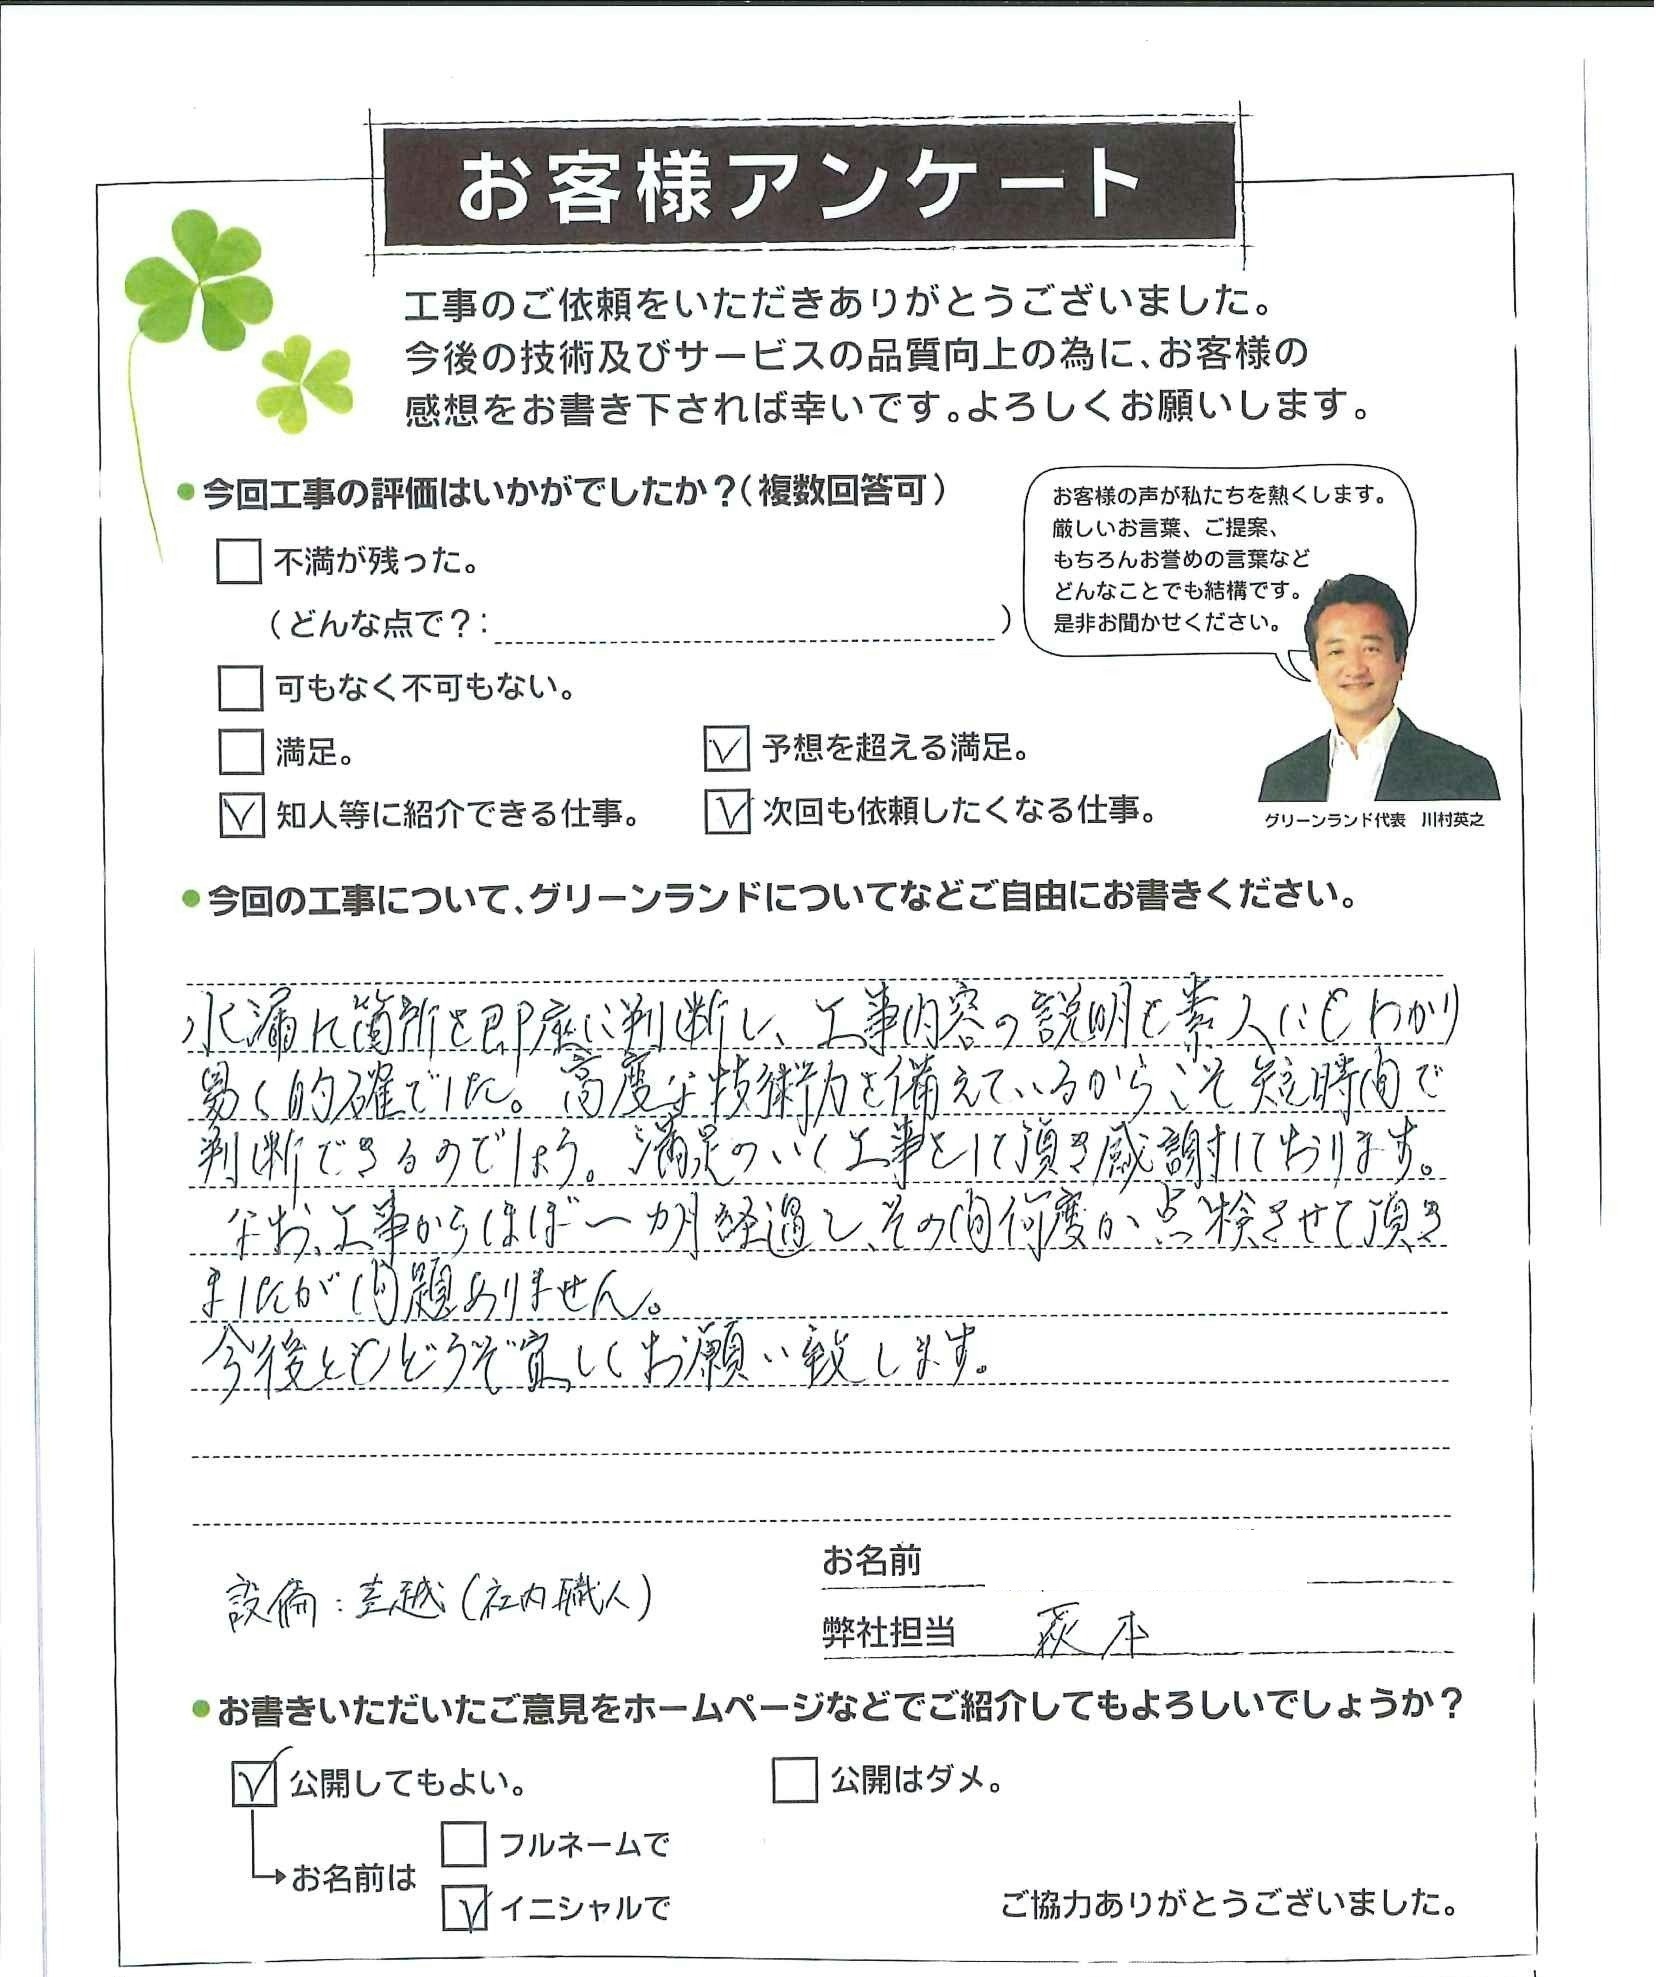 お客様アンケート
工事のご依頼をいただきありがとうございました。
今後の技術及びサービスの品質向上の為に、お客様の
感想をお書き下されば幸いです。よろしくお願いします。
今回工事の評価はいかがでしたか？（複数回答可）
不満が残った。
（どんな点で？：　）
可もなく不可もない。
満足。
予想を超える満足。
知人等に紹介できる仕事。
次回も依頼したくなる仕事。
お客様の声が私たちを熱くします。
厳しいお言葉、ご提案、
もちろんお誉めの言葉など
どんなことでも結構です。
是非お聞かせください。
グリーンランド代表　川村英之
今回の工事について、グリーンランドについてなどご自由にお書きください。
水漏れ箇所を即座に判断し、工事内容の説明も素人にもわかり
易く的確でした。高度な技術力を備えているからこそ短時間で
判断できるのでしょう。満足のいく工事をして頂き感謝しております。
なお、工事からほぼ一カ月経過し、その間何度か点検させて頂き
ましたが問題ありません。
今後ともどうぞ宜しくお願い致します。
お名前
設備：　越（社内職人）
弊社担当　萩本
お書きいただいたご意見をホームページなどでご紹介してもよろしいでしょうか？
公開してもよい。
公開はダメ。
お名前は
フルネームで
イニシャルで
ご協力ありがとうございました。